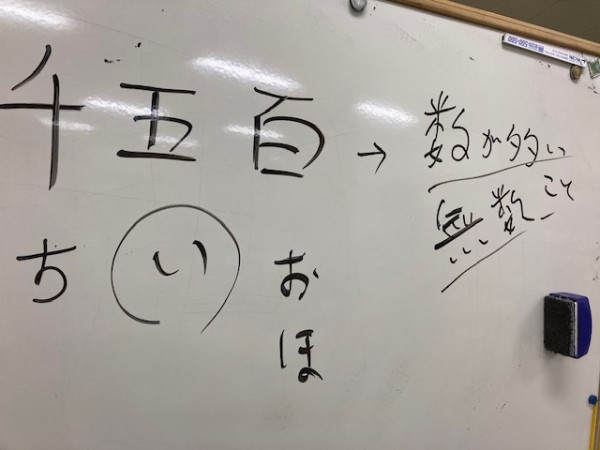 千五百→数が多いこと
無数
ち い おほ